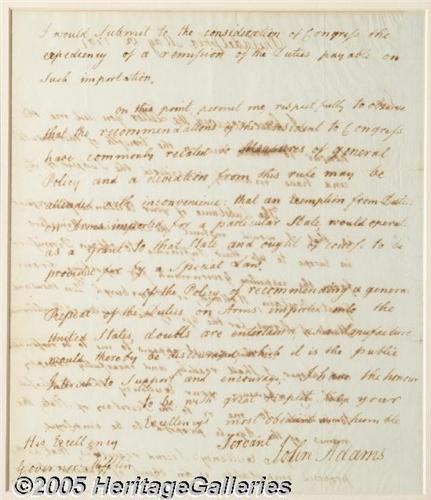 I would submit to the consideration of Congress the
expediency of a remission of the Duties payable on
such importation.
On this point permit me, respectfully to observe
that the recommendations of the President to Congress
have commonly related to Measures of general
Policy and a deviation from this rule may be
attended with inconvenience; that an Exemption from Duties
on Arms imported for a particular State would operate
as a Grant to that State and ought of course to be
provided for by a Special Law.
Of the Policy of recommending a general
Repeal of the Duties on Arms imported into the
United States, doubts are entertained a manufacture
would thereby be discouraged which it is the public
Interest to Support and encourage. I have the honour
to be with great respect, Sir your
Excellencys most obedient and humble
His Excellency Servant John Adams
Governor Mifflin
©2005 HeritageGalleries